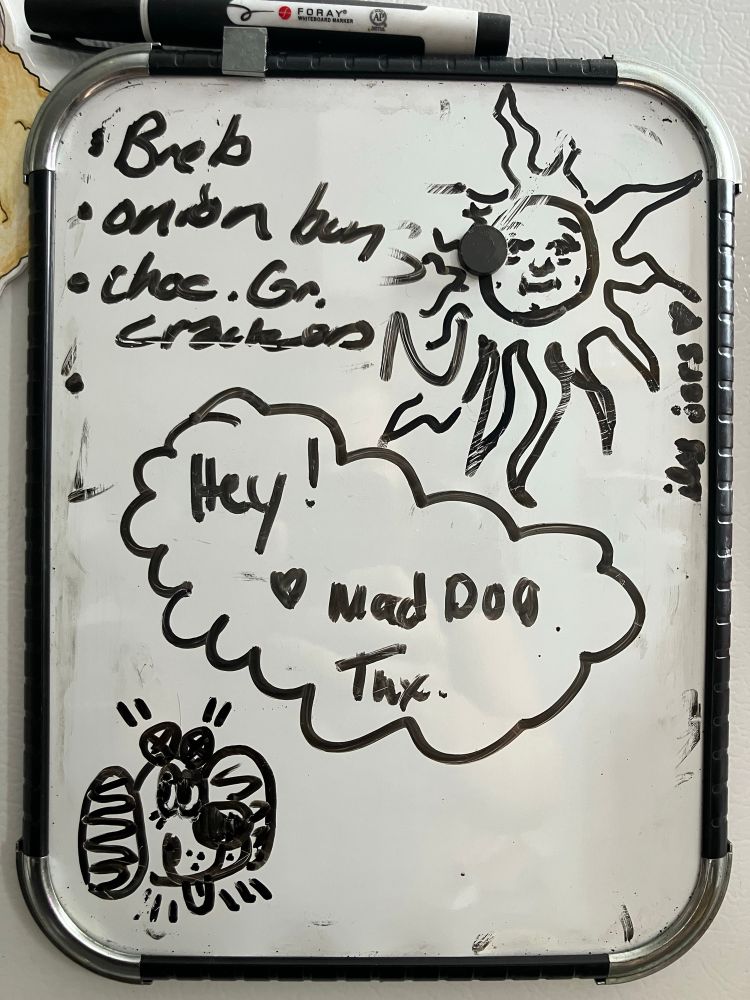 FORAY®
WHITEBOARD MARKER
AP
• Breb
• onion buns
• choc. Gr.
crackers
N
Hey!
♥ Mad Dog
Tnx.